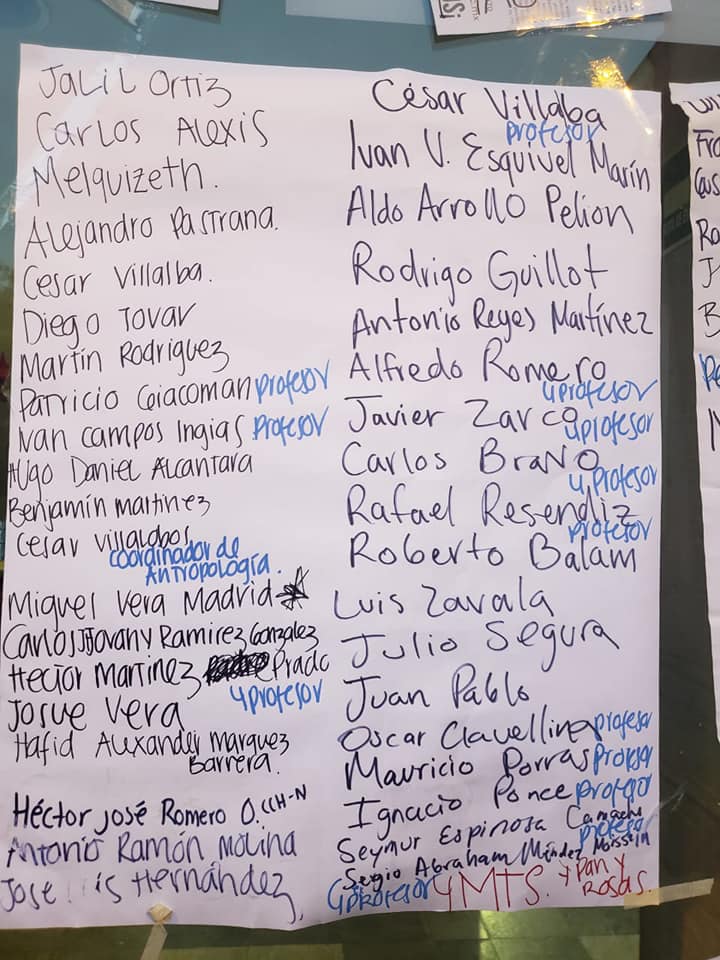 Jalil Ortiz
Carlos Alexis
Melquizeth.
Alejandro Pastrana.
Cesar Villalba.
Diego Tovar
Martin Rodriguez
Patricio Giacoman profesor
Ivan Campos Ingias profesor
Hugo Daniel Alcantara
Benjamín Martinez
Cesar Villalobos
coordinador de
Antropología.
Miguel Vera Madrid
Carlos Jovany Ramirez Gonzalez
Hector Martinez Prado
Josue Vera y profesor
Hafid Alexander Marquez
Barrera.
Héctor José Romero O. CCH-N
Antonio Ramón Molina
Jose Hernández,
y profesor
César Villalba
profesor
Ivan V. Esquivel Marín
Aldo Arrollo Pelion
Rodrigo Guillot
Antonio Reyes Martínez
Alfredo Romero
y profesor
Javier Zarco
y profesor
Carlos Bravo
y profesor
Rafael Resendiz
profesor
Roberto Balam
Luis Zavala
Julio Segura
Juan Pablo
Oscar Clavellina profesor
Mauricio Porras profesor
Ignacio Ponce profesor
Seymur Espinosa Camacho
profesor
Sergio Abraham Méndez Moissen
y MTS. y Pan y
Rosas.